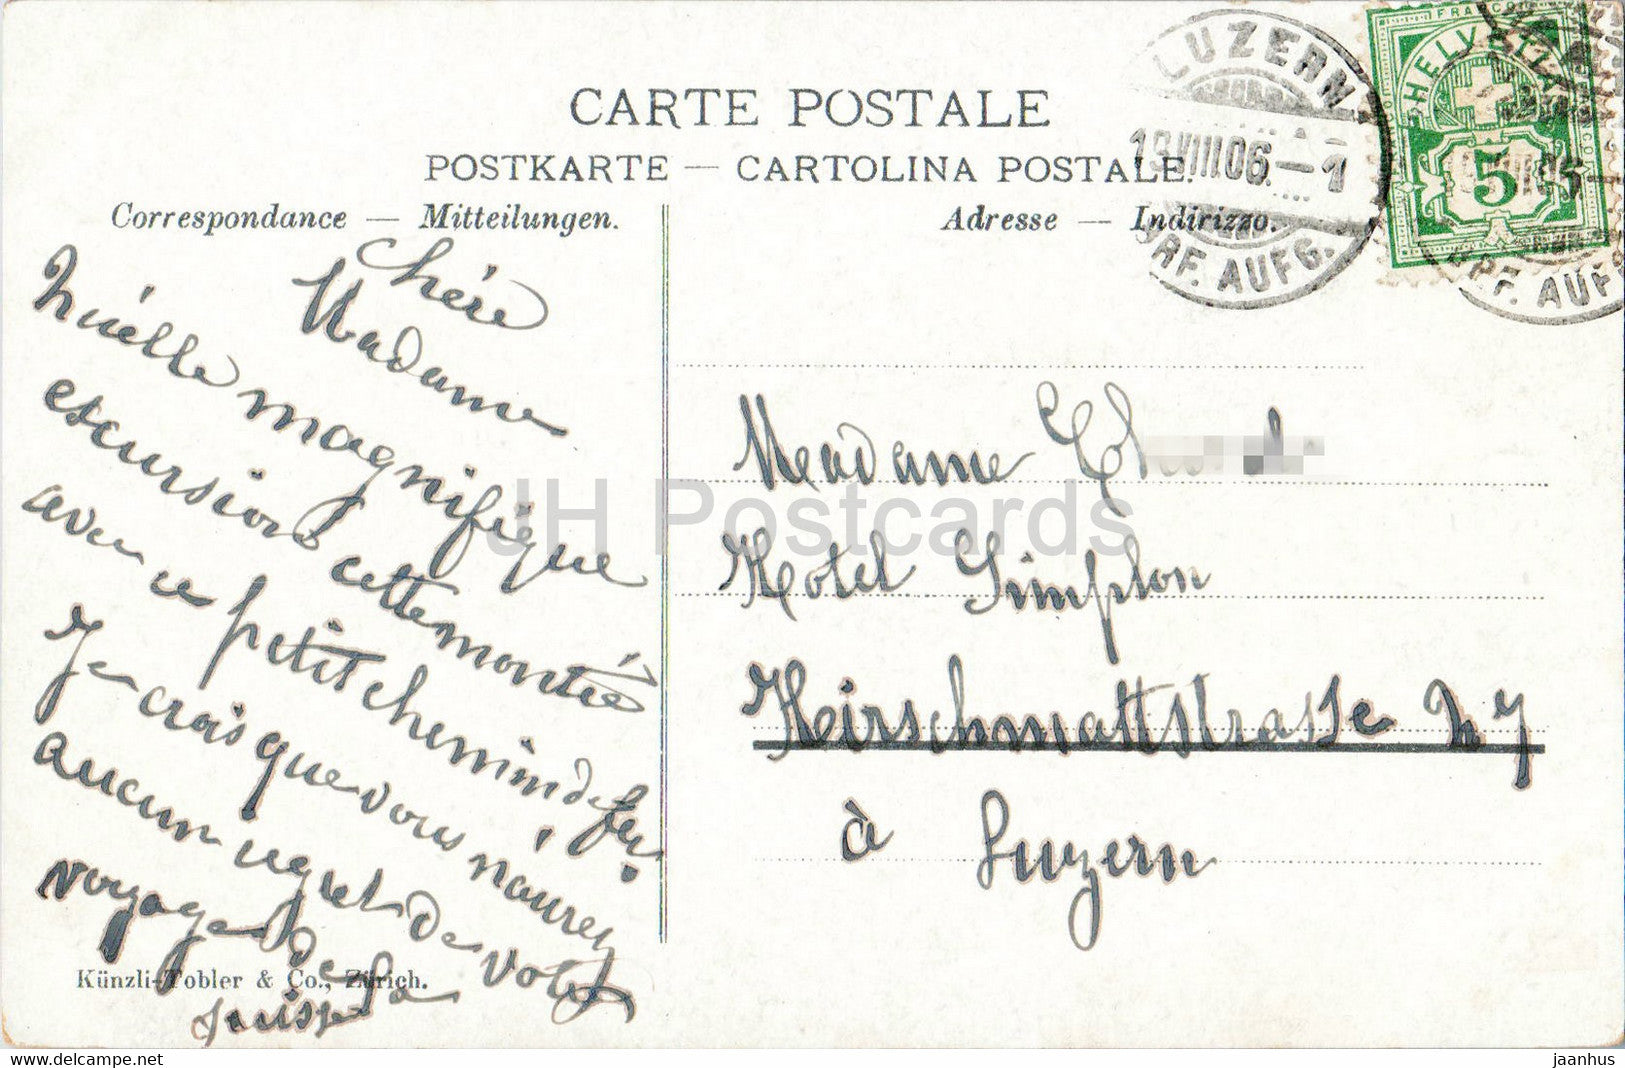 CARTE POSTALE
POSTKARTE — CARTOLINA POSTALE.
Correspondance — Mitteilungen.
Adresse — Indirizzo.
LUZERN
13.VIII.06.–1
BRF. AUFG.
FRANCO
HELVETIA
5
BRF. AUFG.
Chère
Madame
Quelle magnifique
excursion cette montée
avec ce petit chemin de fer.
Je crois que vous n'aurez
aucun regret de votre
voyage de la
Suisse
Künzli-Tobler & Co., Zürich.
Madame
Hotel Simplon
Hirschmattstrasse
à Luzern
JH Postcards
jaanhus
www.delcampe.net